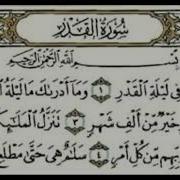 سُورَةُ القَدْرِ
بِسْمِ اللَّهِ الرَّحْمَٰنِ الرَّحِيمِ
فِي لَيْلَةِ الْقَدْرِ ١ وَمَا أَدْرَىٰكَ مَا لَيْلَةُ
خَيْرٌ مِّنْ أَلْفِ شَهْرٍ ٣ تَنَزَّلُ الْمَلَٰٓئِ
رَبِّهِم مِّن كُلِّ أَمْرٍ ٤ سَلَٰمٌ هِيَ حَتَّىٰ مَطْلَعِ